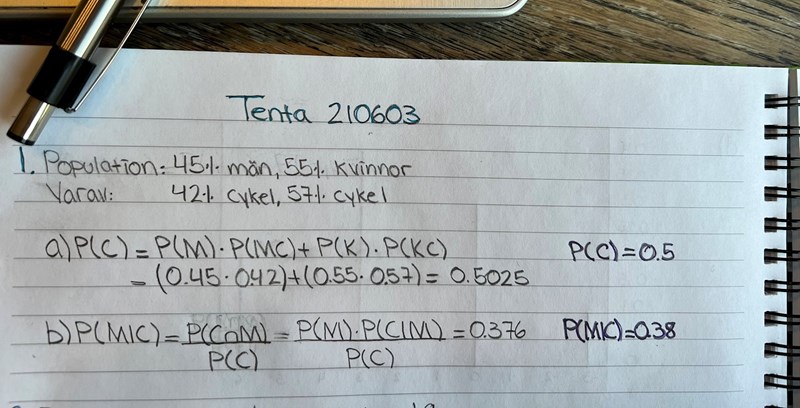 Tenta 210603
1. Population: 45% män, 55% kvinnor
Varav: 42% cykel, 57% cykel
a) P(C) = P(M) · P(MC) + P(K) · P(KC) P(C) = 0.5
= (0.45 · 0.42) + (0.55 · 0.57) = 0.5025
b) P(M|C) = P(C∩M) / P(C) = P(M) · P(C|M) / P(C) = 0.376 P(M|C) = 0.38